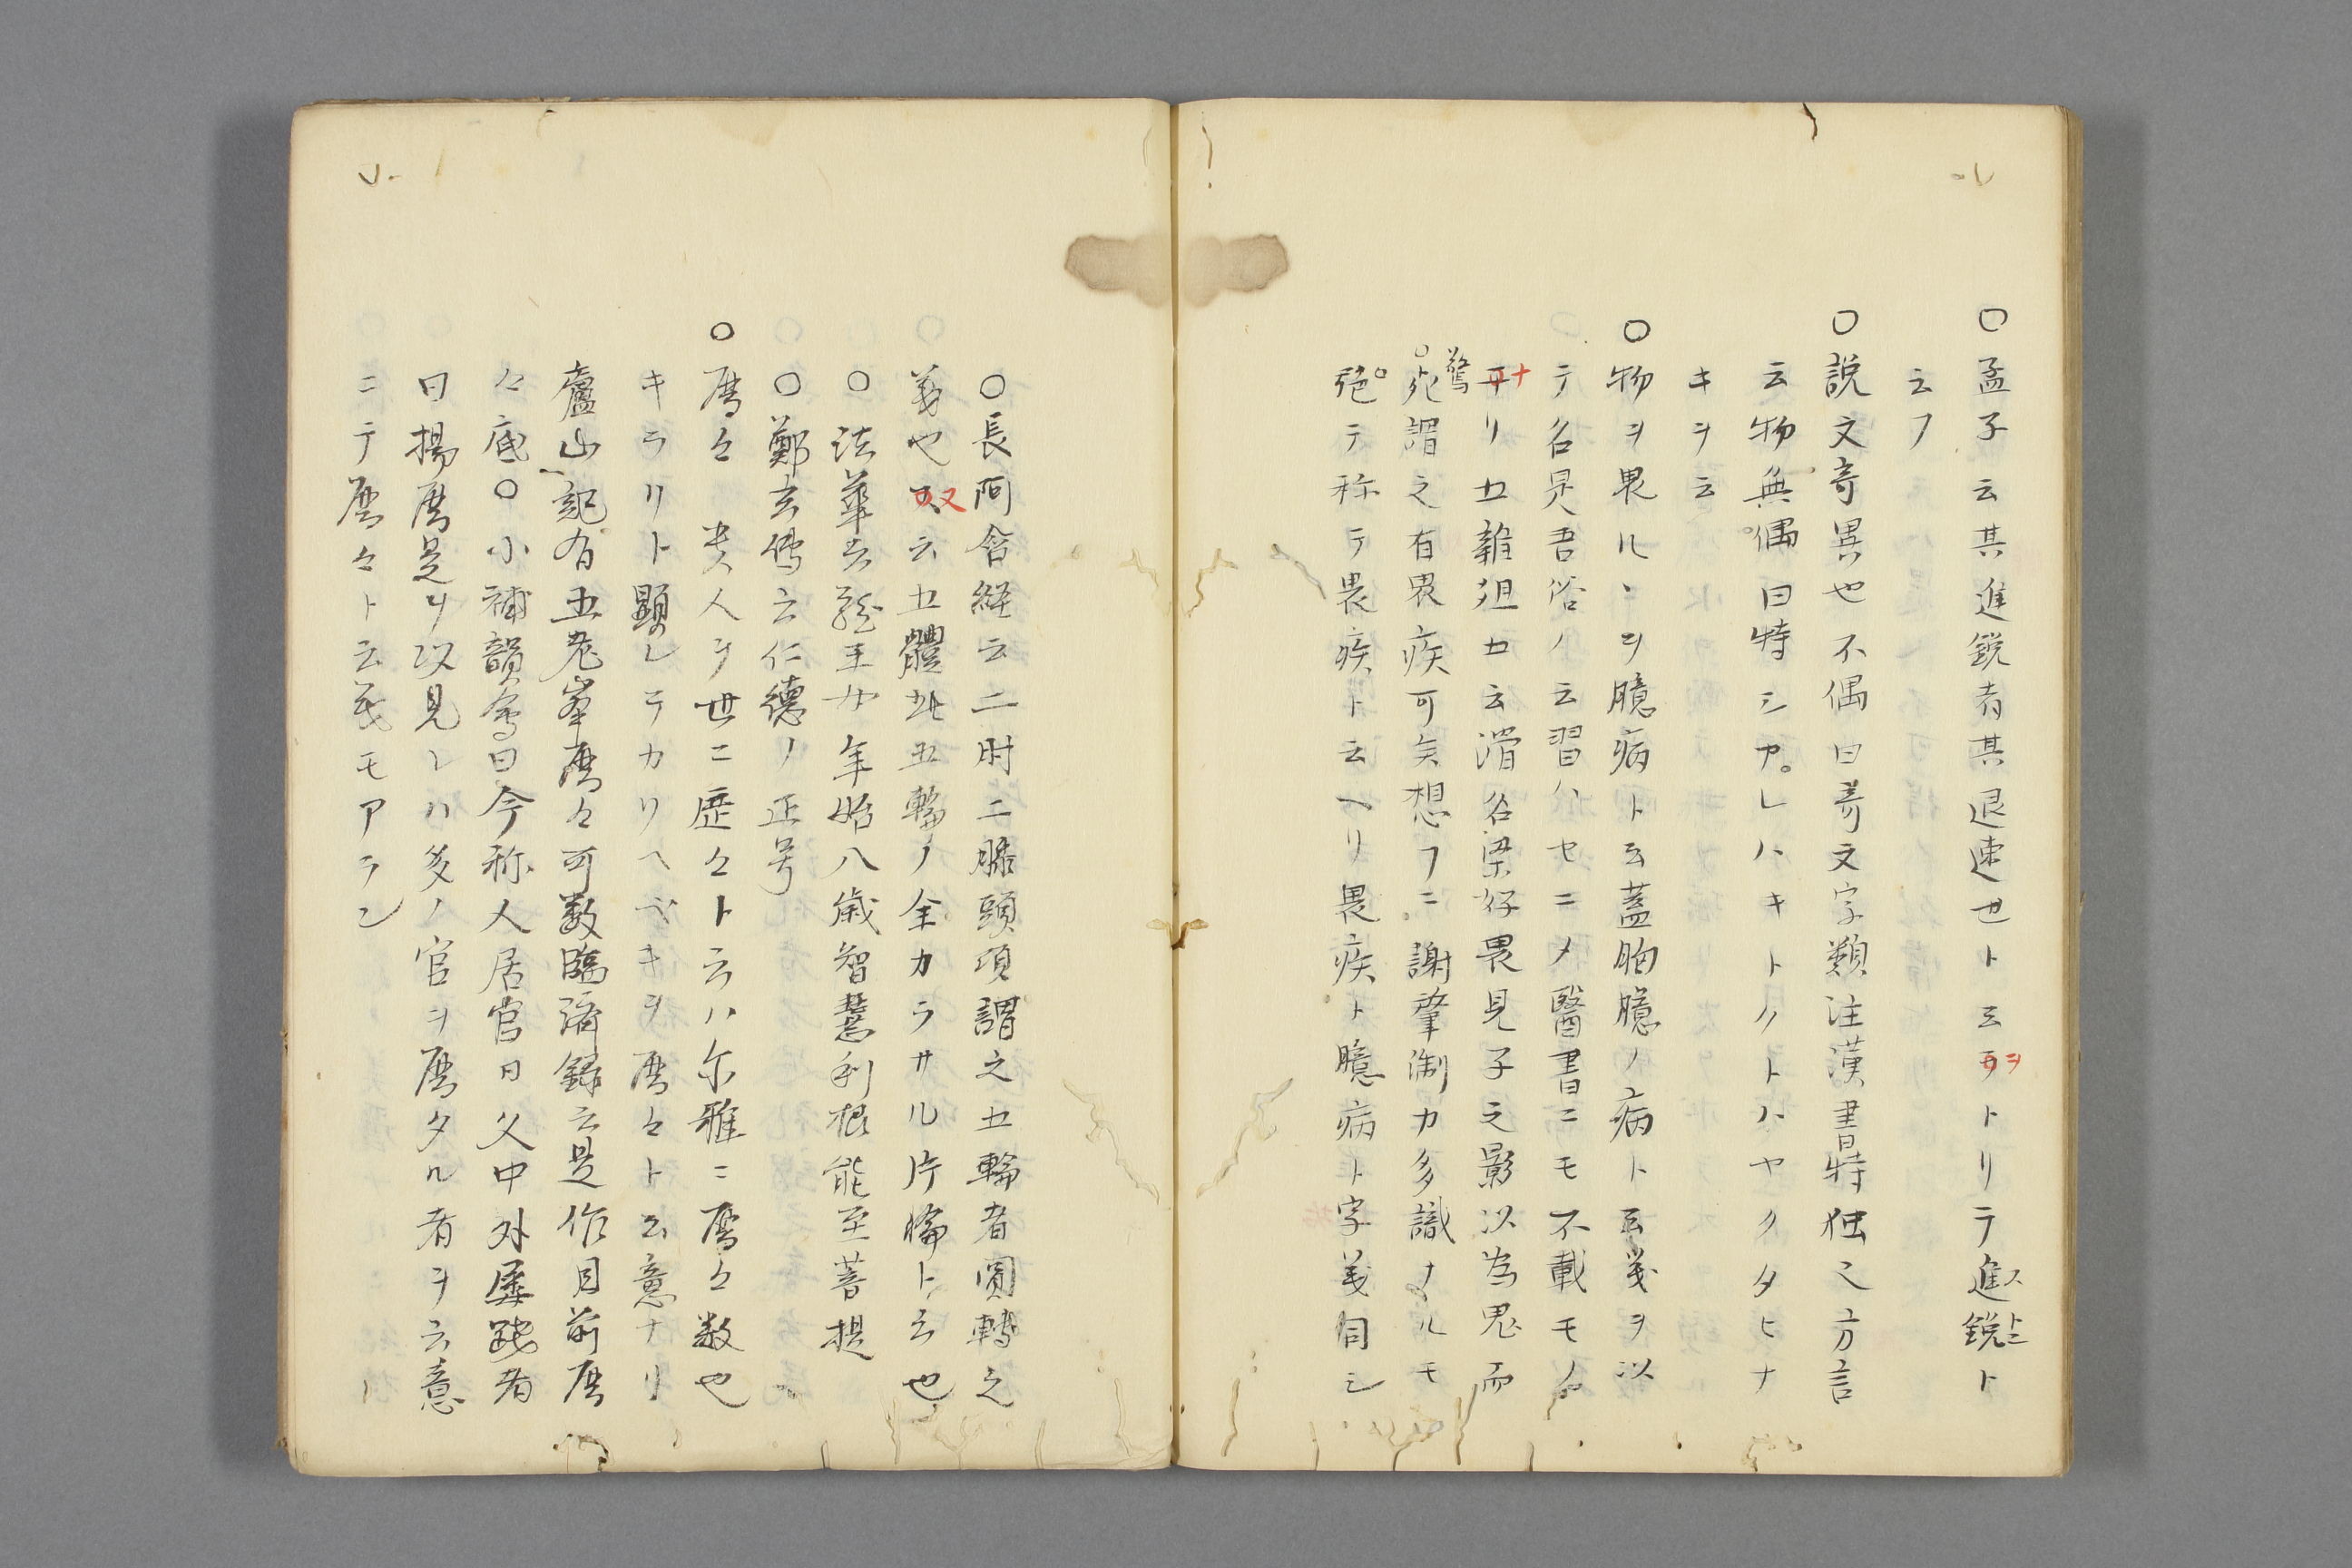 〇孟子云其進鋭者其退速也ト云ヲトリテ進ス鋭トニト
云フ
〇説文奇異也不偶曰奇文字類注漢書特独之方言
云物無偶曰特シアレハキトクトハヤクタヒナ
キヲ云
〇物ヲ畏ルヽヲ臆病ト云蓋胸臆ノ病ト云義ヲ以
テ名是吾俗ノ云習ハセニメ醫書ニモ不載モノ
ナリ五雑俎ニ云滑名梁好畏見子之影以為鬼而
驚死謂之有畏疾可矣想フニ謝肇淛カ多識ナルモ
絶テ称テ畏疾ト云ヘリ畏疾ト臆病ト字義同シ
〇長阿含経云二肘二膝頭頂謂之五輪者圓轉之
義也又云五體此五輪ノ全カラサル片輪ト云也
〇法華云龍王女年始八歳智慧利根能至菩提
〇鄭玄傳云仁德ノ正号
〇歴々 貴人ヲ世ニ歴々ト云ハ尓雅ニ歴々数也
キラリト顕レテカリヘベキヲ歴々ト云意ナリ
廬山記有五老峯歴々可数臨濟録云是作目前歴
々底〇小補韻會曰今称人居官曰父中外履践者
曰揚歴是ヲ以見レハ多ノ官ヲ歴タル者ヲ云意
ニテ歴々ト云義モアラン